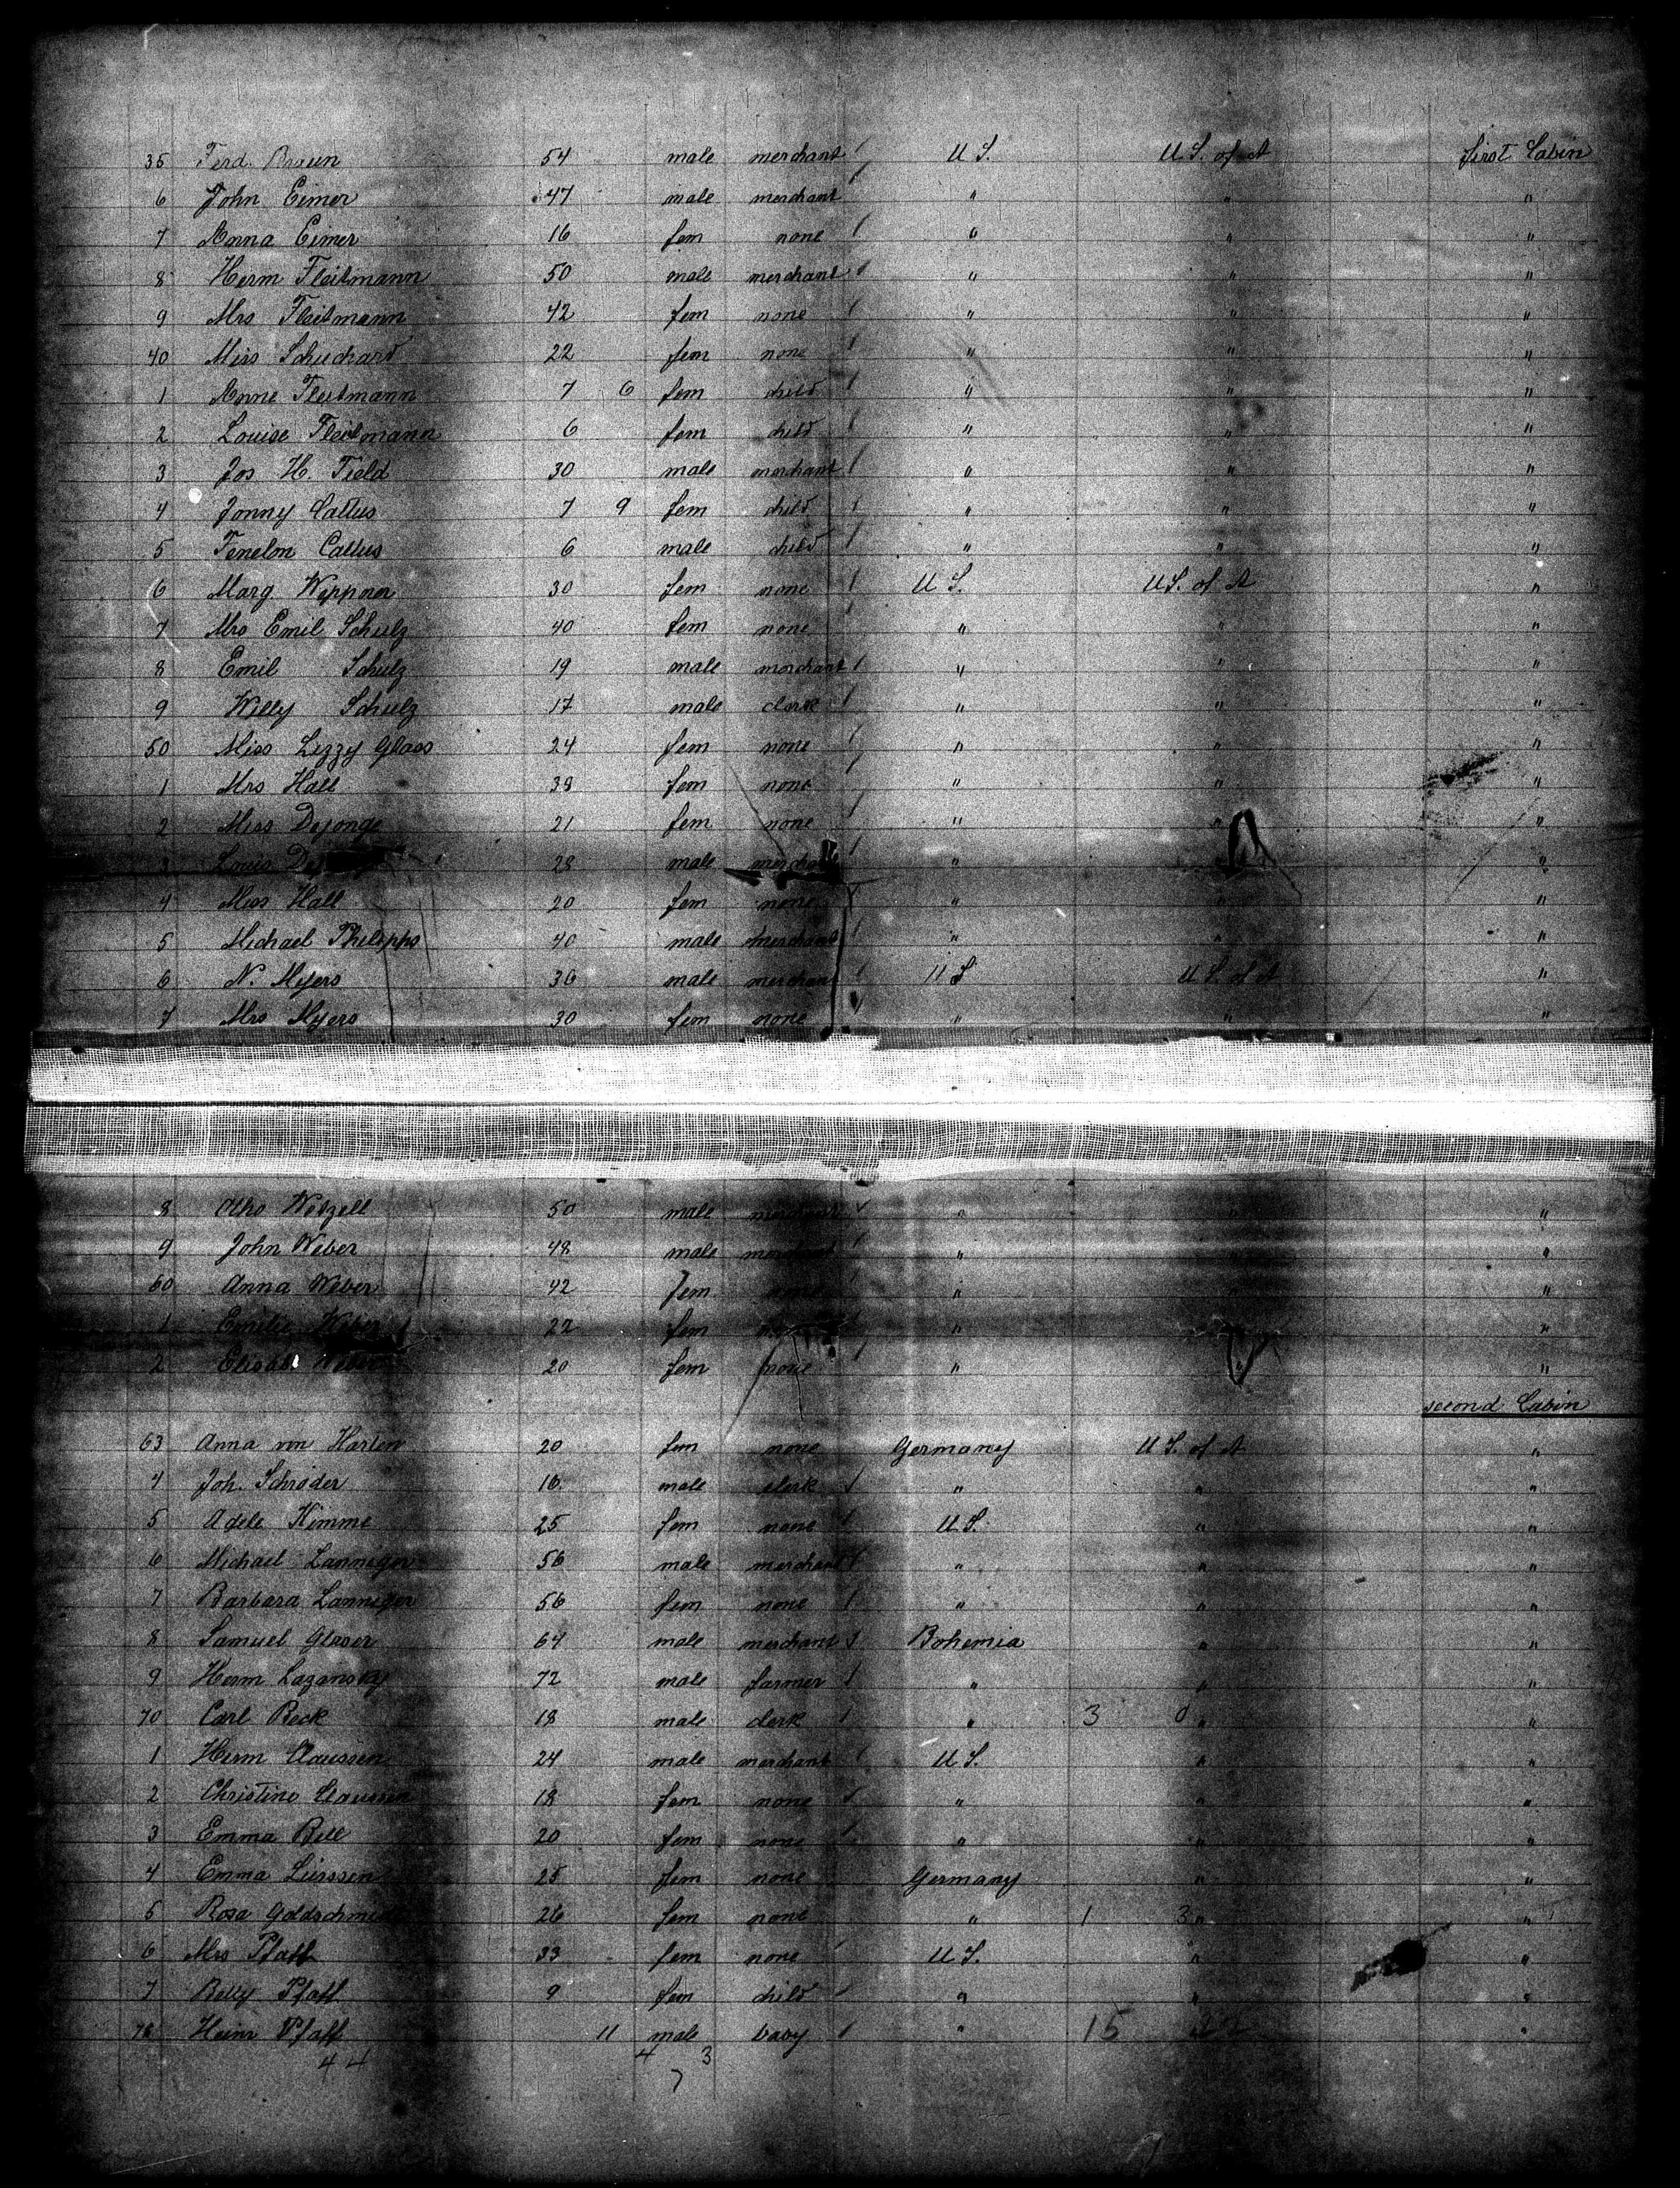 35 Ferd. Braun 54 male merchant U S. U S. of A first Cabin
6 John Eimer 47 male merchant " " "
7 Anna Eimer 16 fem none " " "
8 Herm Fleitmann 50 male merchant " " "
9 Mrs Fleitmann 42 fem none " " "
40 Miss Schuchard 22 fem none " " "
1 Anne Fleitmann 7 6 fem child " " "
2 Louise Fleitmann 6 fem child " " "
3 Jos H. Field 30 male merchant " " "
4 Jonny Callus 7 9 fem child " " "
5 Fenelon Callus 6 male child " " "
6 Marg. 30 fem none U S. U S. of A "
7 Mrs Emil Schulz 40 fem none " " "
8 Emil Schulz 19 male merchant " " "
9 Willy Schulz 17 male clerk " " "
50 Miss Lizzy Glass 24 fem none " " "
1 Mrs Hall 38 fem none " " "
2 Miss Dejonge 21 fem none " " "
3 Louis 28 male merchant " " "
4 Miss Hall 20 fem none " " "
5 Michael Philipps 40 male merchant " " "
6 N. Myers 36 male merchant U S U S. of A "
7 Mrs Myers 30 fem none " " "
8 Otho Wetzell 50 male merchant " " "
9 John Weber 48 male merchant " "
60 Anna Weber 42 fem none " " "
1 Emilie Weber 22 fem " "
2 Elisab Weber 20 fem none " " "
second Cabin
63 Anna von Harten 20 fem none Germany U S. of A "
4 Joh. Schröder 16 male clerk " " "
5 Adele Kimme 25 fem none U S. " "
6 Michael Lanniger 56 male merchant " " "
7 Barbara Lanniger 56 fem none " " "
8 Samuel Glaser 64 male merchant Bohemia " "
9 Herm Lazansky 72 male farmer " " "
70 Carl Beck 18 male clerk " 3 0 " "
1 Herm Claussen 24 male merchant U S. " "
2 Christine Claussen 18 fem none " " "
3 Emma Bell 20 fem none " " "
4 Emma Lürssen 25 fem none Germany " "
5 Rosa Goldschmidt 26 fem none " 1 3 " "
6 Mrs Pfaff 33 fem none U S. " "
7 Belly Pfaff 9 fem child " " "
78 Heinr Pfaff 11 male baby " 15 "
44 4 3
7